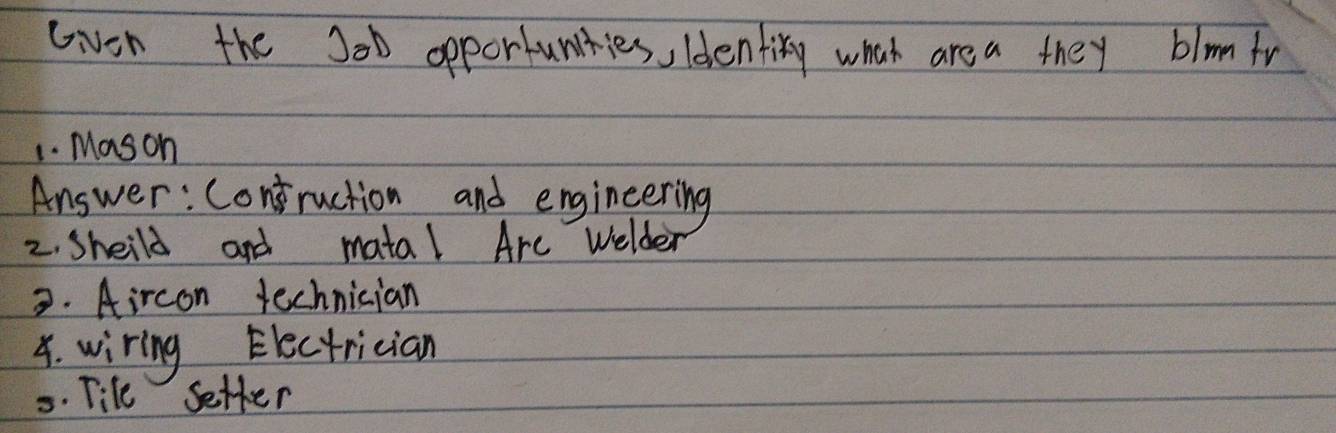 Given the Job opportunities, Identify what area they
1. Mason
Answer: Contruction and engineering
2. Sheild and matal Arc Welder
3. Aircon technician
4. wiring Electrician
5. Tile setter